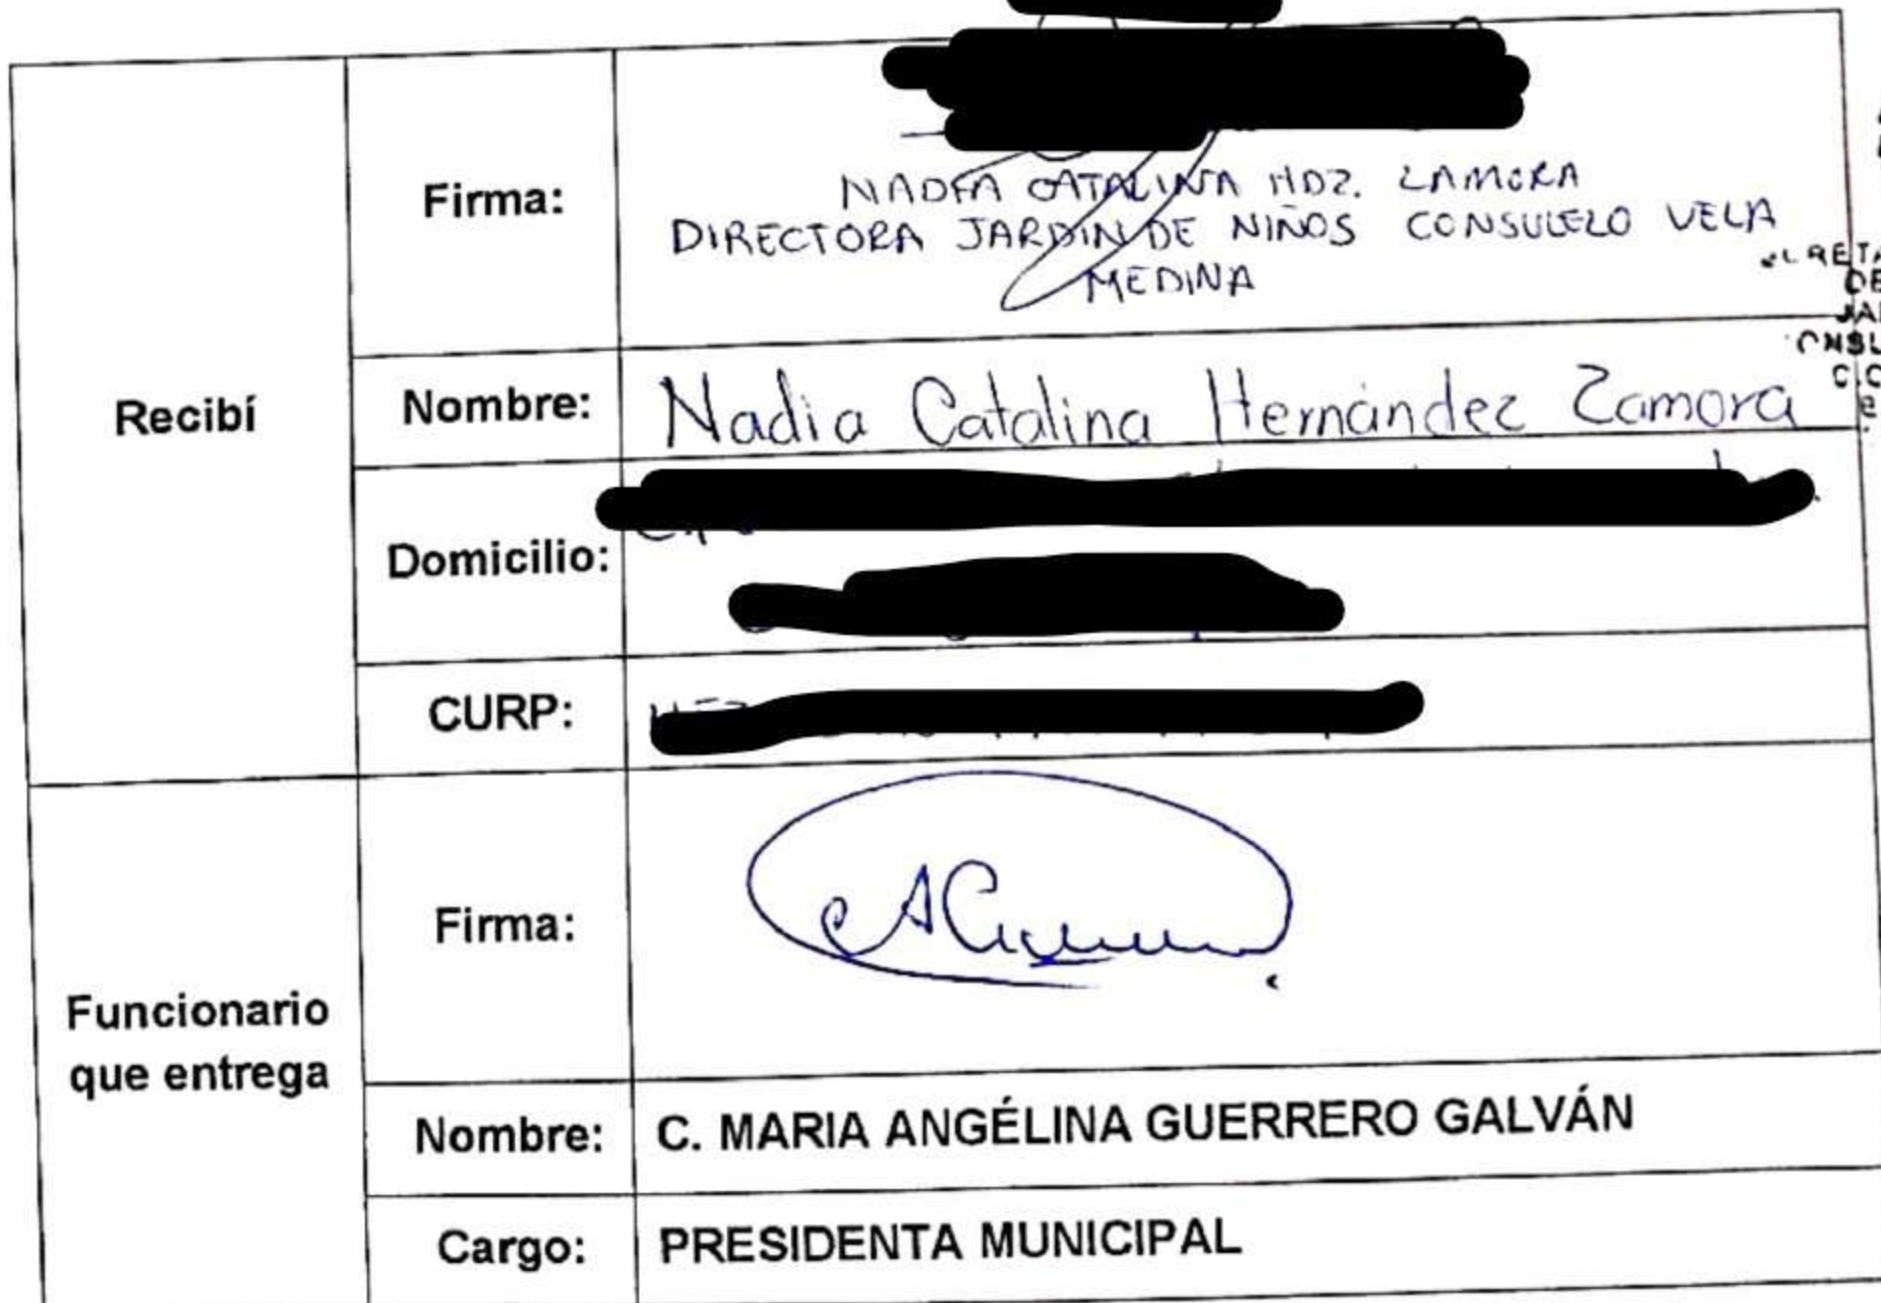 Recibí
Firma:
NADIA CATALINA HDZ. ZAMORA
DIRECTORA JARDIN DE NIÑOS CONSULELO VELA
MEDINA
Nombre: Nadia Catalina Hernández Zamora
Domicilio:
CURP:
Funcionario
que entrega
Firma:
Nombre: C. MARIA ANGÉLINA GUERRERO GALVÁN
Cargo: PRESIDENTA MUNICIPAL